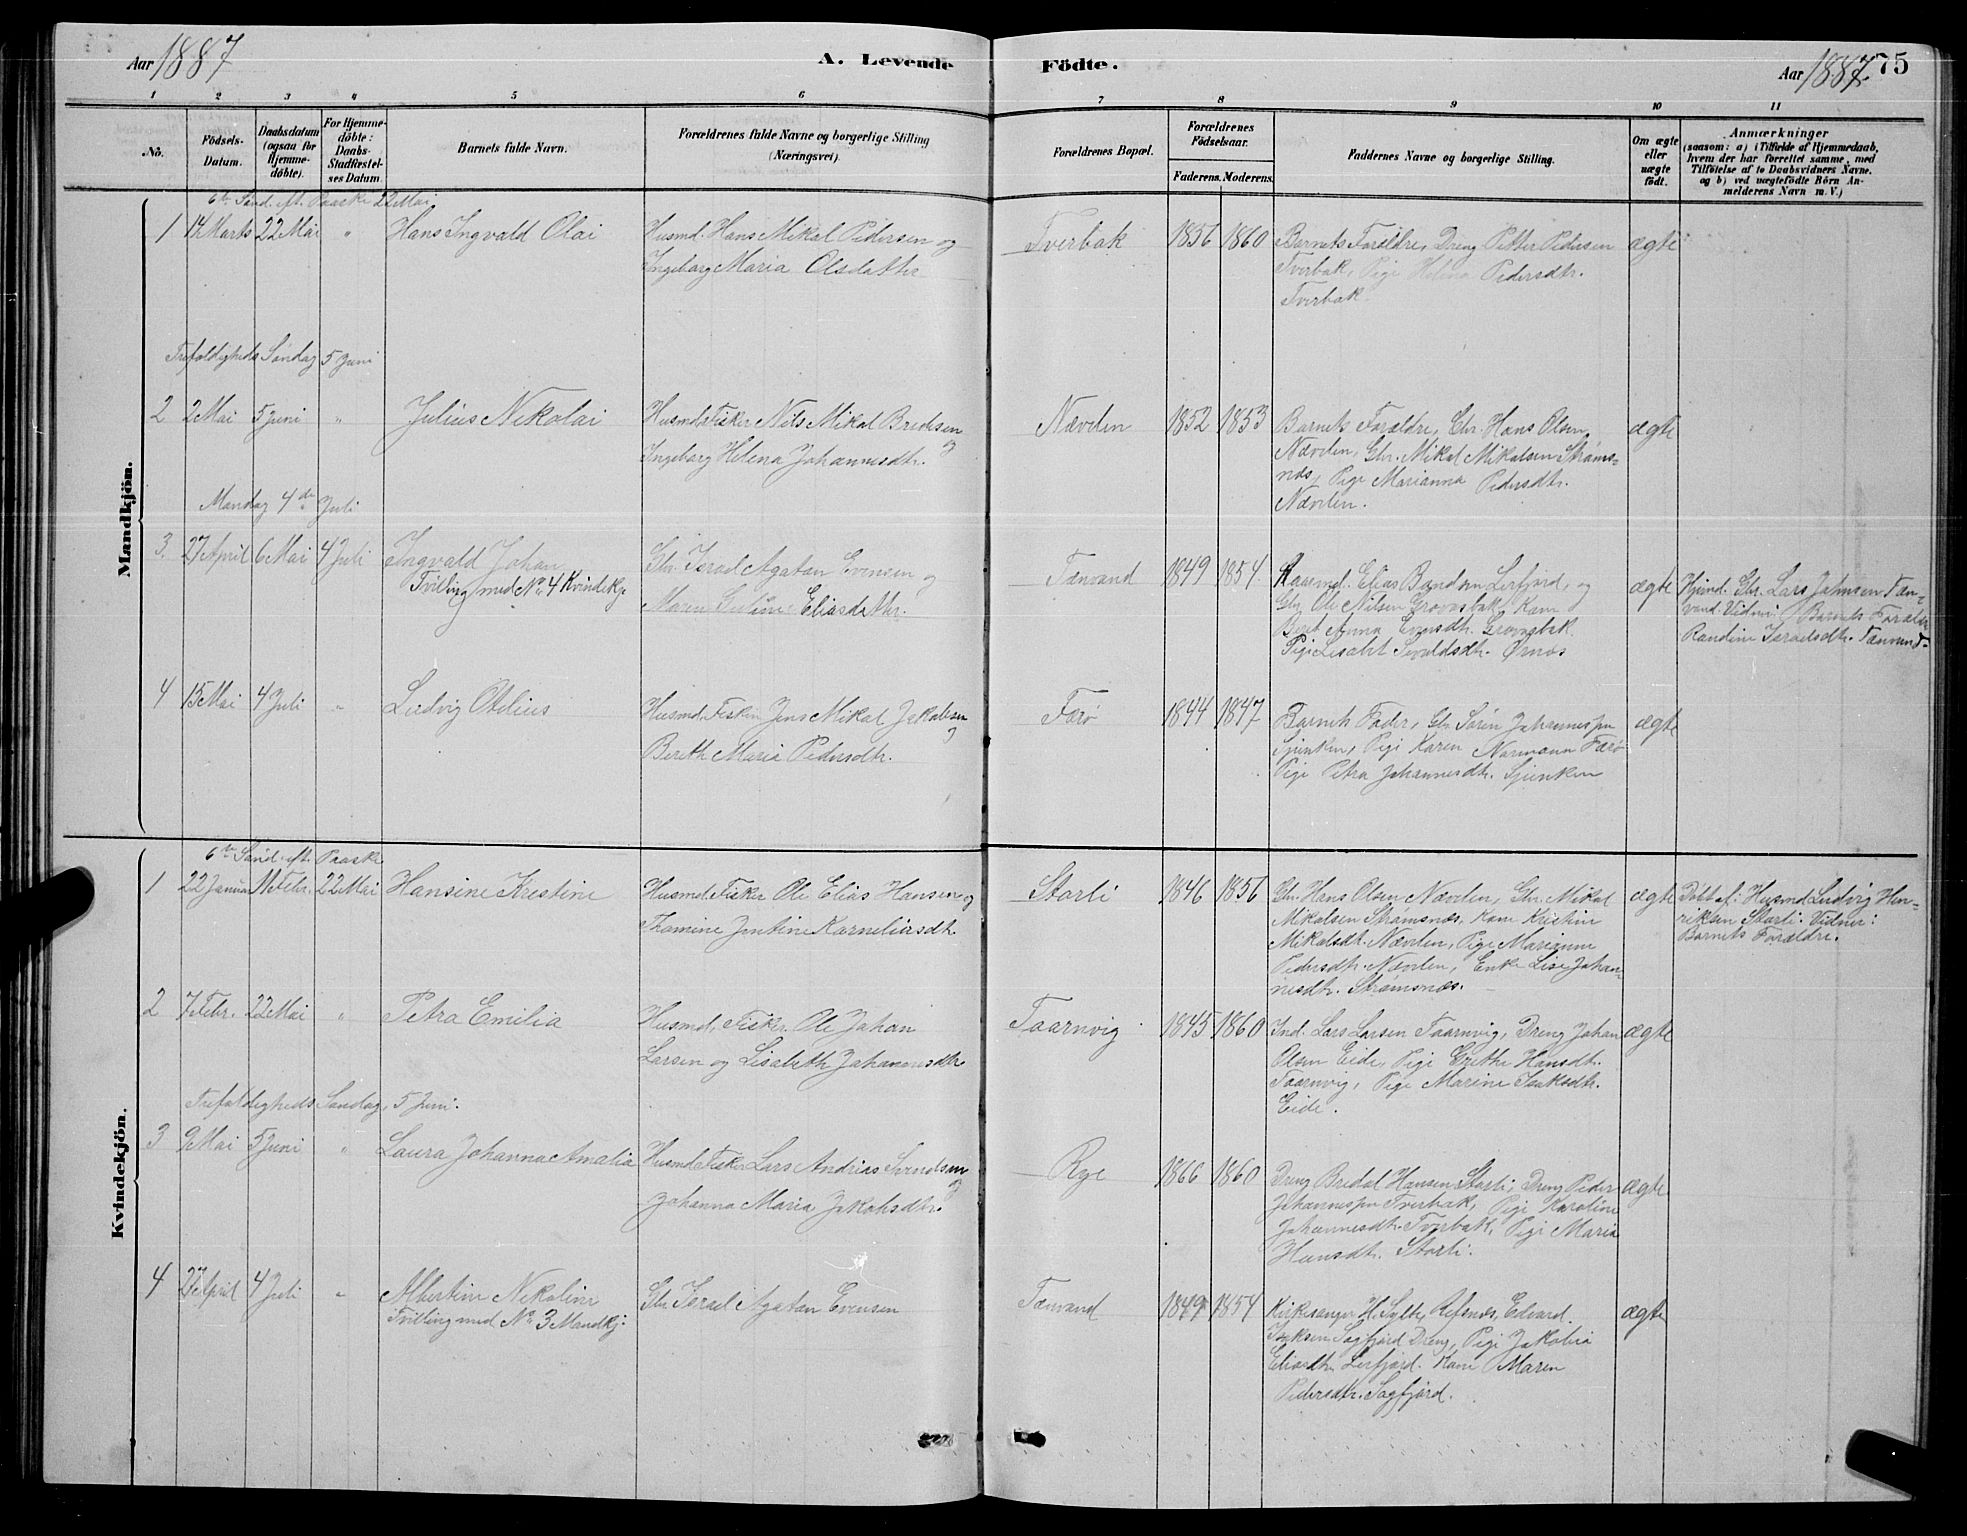 Aar 1887
A. Levende
Födte.
Aar 1887.
75
1 2 3 4 5 6 7 8 9 10 11
No.
Födsels-
Datum.
Daabsdatum
(ogsaa for
Hjemme-
döbte).
For Hjemme-
döbte:
Daabs-
Stadfæstel-
ses Datum.
Barnets fulde Navn.
Forældrenes fulde Navne og borgerlige Stilling
(Næringsvei).
Forældrenes Bopæl.
Forældrenes
Födselsaar.
Faderens. Moderens.
Faddernes Navne og borgerlige Stilling.
Om ægte
eller
uægte
födt.
Anmærkninger
(saasom: a) i Tilfælde af Hjemmedaab,
hvem der har forrettet samme, med
Tilföielse af to Daabsvidners Navne.
og b) ved uægtefödte Börn An-
melderens Navn m. V.)
Mandkjön.
6te Sönd. eft. Paaske 22 Mai
1 14 Marts 22 Mai " Hans Ingvald Olai
Husmd. Hans Mikal Pedersen og
Ingeborg Maria Olsdatter
Tverbak 1856 1860
Barnets Forældre, Dreng Petter Pedersen
Tverbak, Pige Helena Pedersdtr.
Tverbak
ægte
Trefoldigheds Søndag 5 Juni
2 2 Mai 5 Juni " Julius Nikolai
Husmd. Fisker Nils Mikal Bredesen
og
Ingeborg Helena Johannesdtr.
Nævden 1852 1853
Barnets Forældre, Gbr. Hans Olsen
Nævden, Gbr. Mikal Mikalsen Strøms=
næs, Pige Marianna Pedersdtr.
Nævden.
ægte
Mandag 4de Juli
3. 27 April 6 Mai 4 Juli Ingvald Johan
Tvilling med No 4 Kvindekj.
Gbr. Israel Agatan Evensen og
Maren Eliasdatter.
Tænvand 1849 1854.
Elias Lerfjord, og
Gbr. Ole Nilsen Grovasbak, Kone
Berit Anna Evensdtr. Grovasbak
Pige Lisabet Sivaldsdtr. Ørnes
ægte
Hjmd. Gbr. Lars Jahnsen Tæn-
vand. Vidner: Barnets Forældre
Randine Israelsdtr. Tænvand.
4 15 Mai 4 Juli " Ludvig Otelius
Husmd. Fisker Jens Mikal Jakobsen
og
Bereth Maria Pedersdtr.
Færø 1844 1847
Barnets Fader, Gbr. Søren Johannessen
Sjunken, Pige Karen Normann Færø
Pige Petra Johannesdtr. Sjunken
ægte
Kvindekjön.
6te Sönd. eft. Paaske
1 22 Januar 11 Febr. 22 Mai Hansine Kristine
Husmd. Fisker Ole Elias Hansen og
Thomine Jentine Korneliusdtr.
Storli 1846 1856
Gbr. Hans Olsen Nævden, Gbr. Mikal
Mikalsen Strømsnæs, Kone Kristine
Mikalsdtr. Nævden, Pige Marianne
Pedersdtr. Nævden, Enke Lise Johan-
nesdtr. Strømsnæs.
ægte
Döbt af: Husmd. Ludvig Hen-
riksen Storli. Vidner:
Barnets Forældre.
2 7 Febr. 22 Mai " Petra Emilia
Husmd. Fisker Ole Johan
Larsen og Lisabeth Johannesdtr.
Taarnvig 1845 1860
Ind. Lars Larsen Taarnvig, Dreng Johan
Olsen Eide, Pige Grethe Hansdtr.
Taarnvig, Pige Marine Isaksdtr.
Eide.
ægte
Trefoldigheds Søndag, 5 Juni.
3 9 Mai 5 Juni " Laura Johanna Amalia
Husmd. Fisker Lars Andrias Svendsen
og
Johanna Maria Jakobsdtr.
Rye 1866 1860
Dreng Bredal Hansen Storli, Dreng Peder
Johannessen Tverbak, Pige Karoline
Johannesdtr. Tverbak, Pige Maria
Hansdtr. Storli.
ægte
4 27 April 4 Juli " Albertine Nikoline
Tvilling med No 3 Mandkj.
Gbr. Israel Agatan Evensen
Tænvand 1849 1854
Kirkesanger H. Sylte, Refsnes, Edvard
Isaksen Sagfjord Dreng, Pige Jakobia
Eliasdtr. Lerfjord. Kone Maren
Pedersdtr. Sagfjord.
ægte